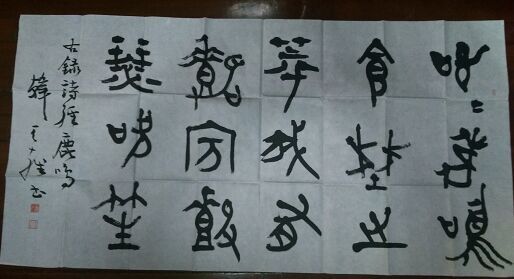 呦〻鹿鳴
食埜之
苹我有
嘉賓鼓
瑟吹笙
古錄詩經鹿鳴
書